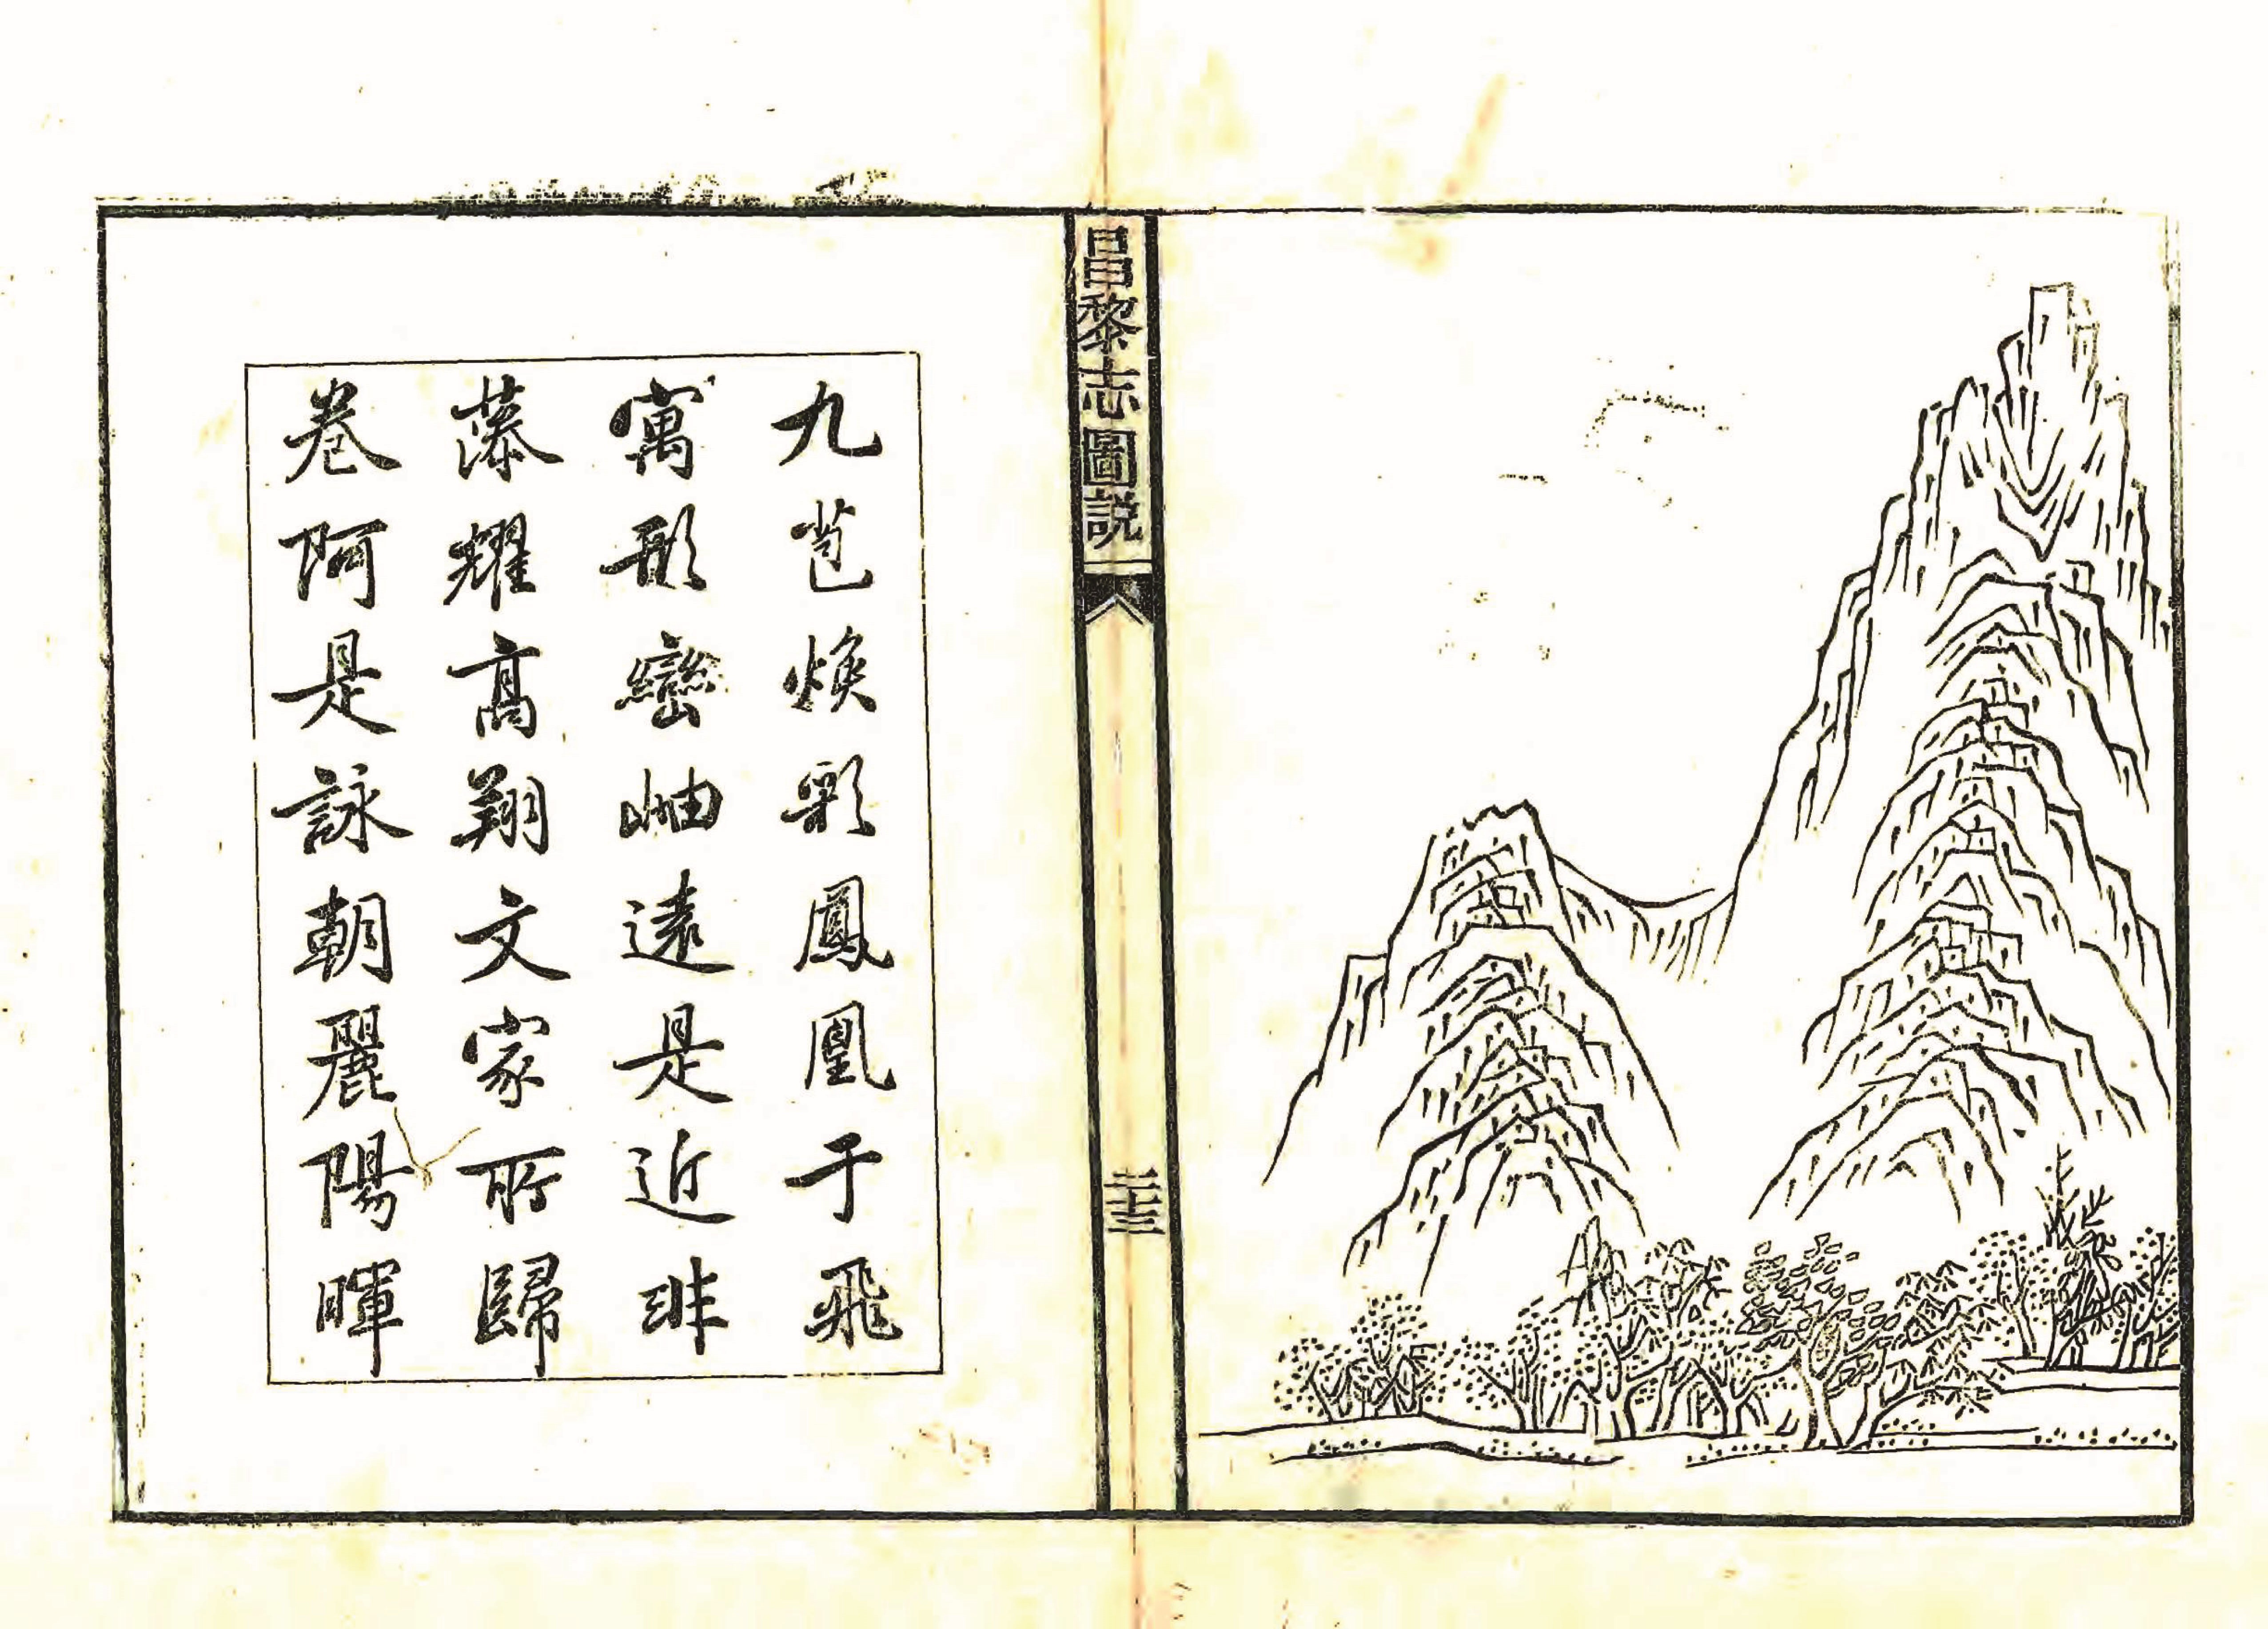 昌黎志圖説
二十三
九苞煥彩鳳凰于飛
寓形巒岫遠是近非
藻耀高翔文家所歸
卷阿是詠朝麗陽暉